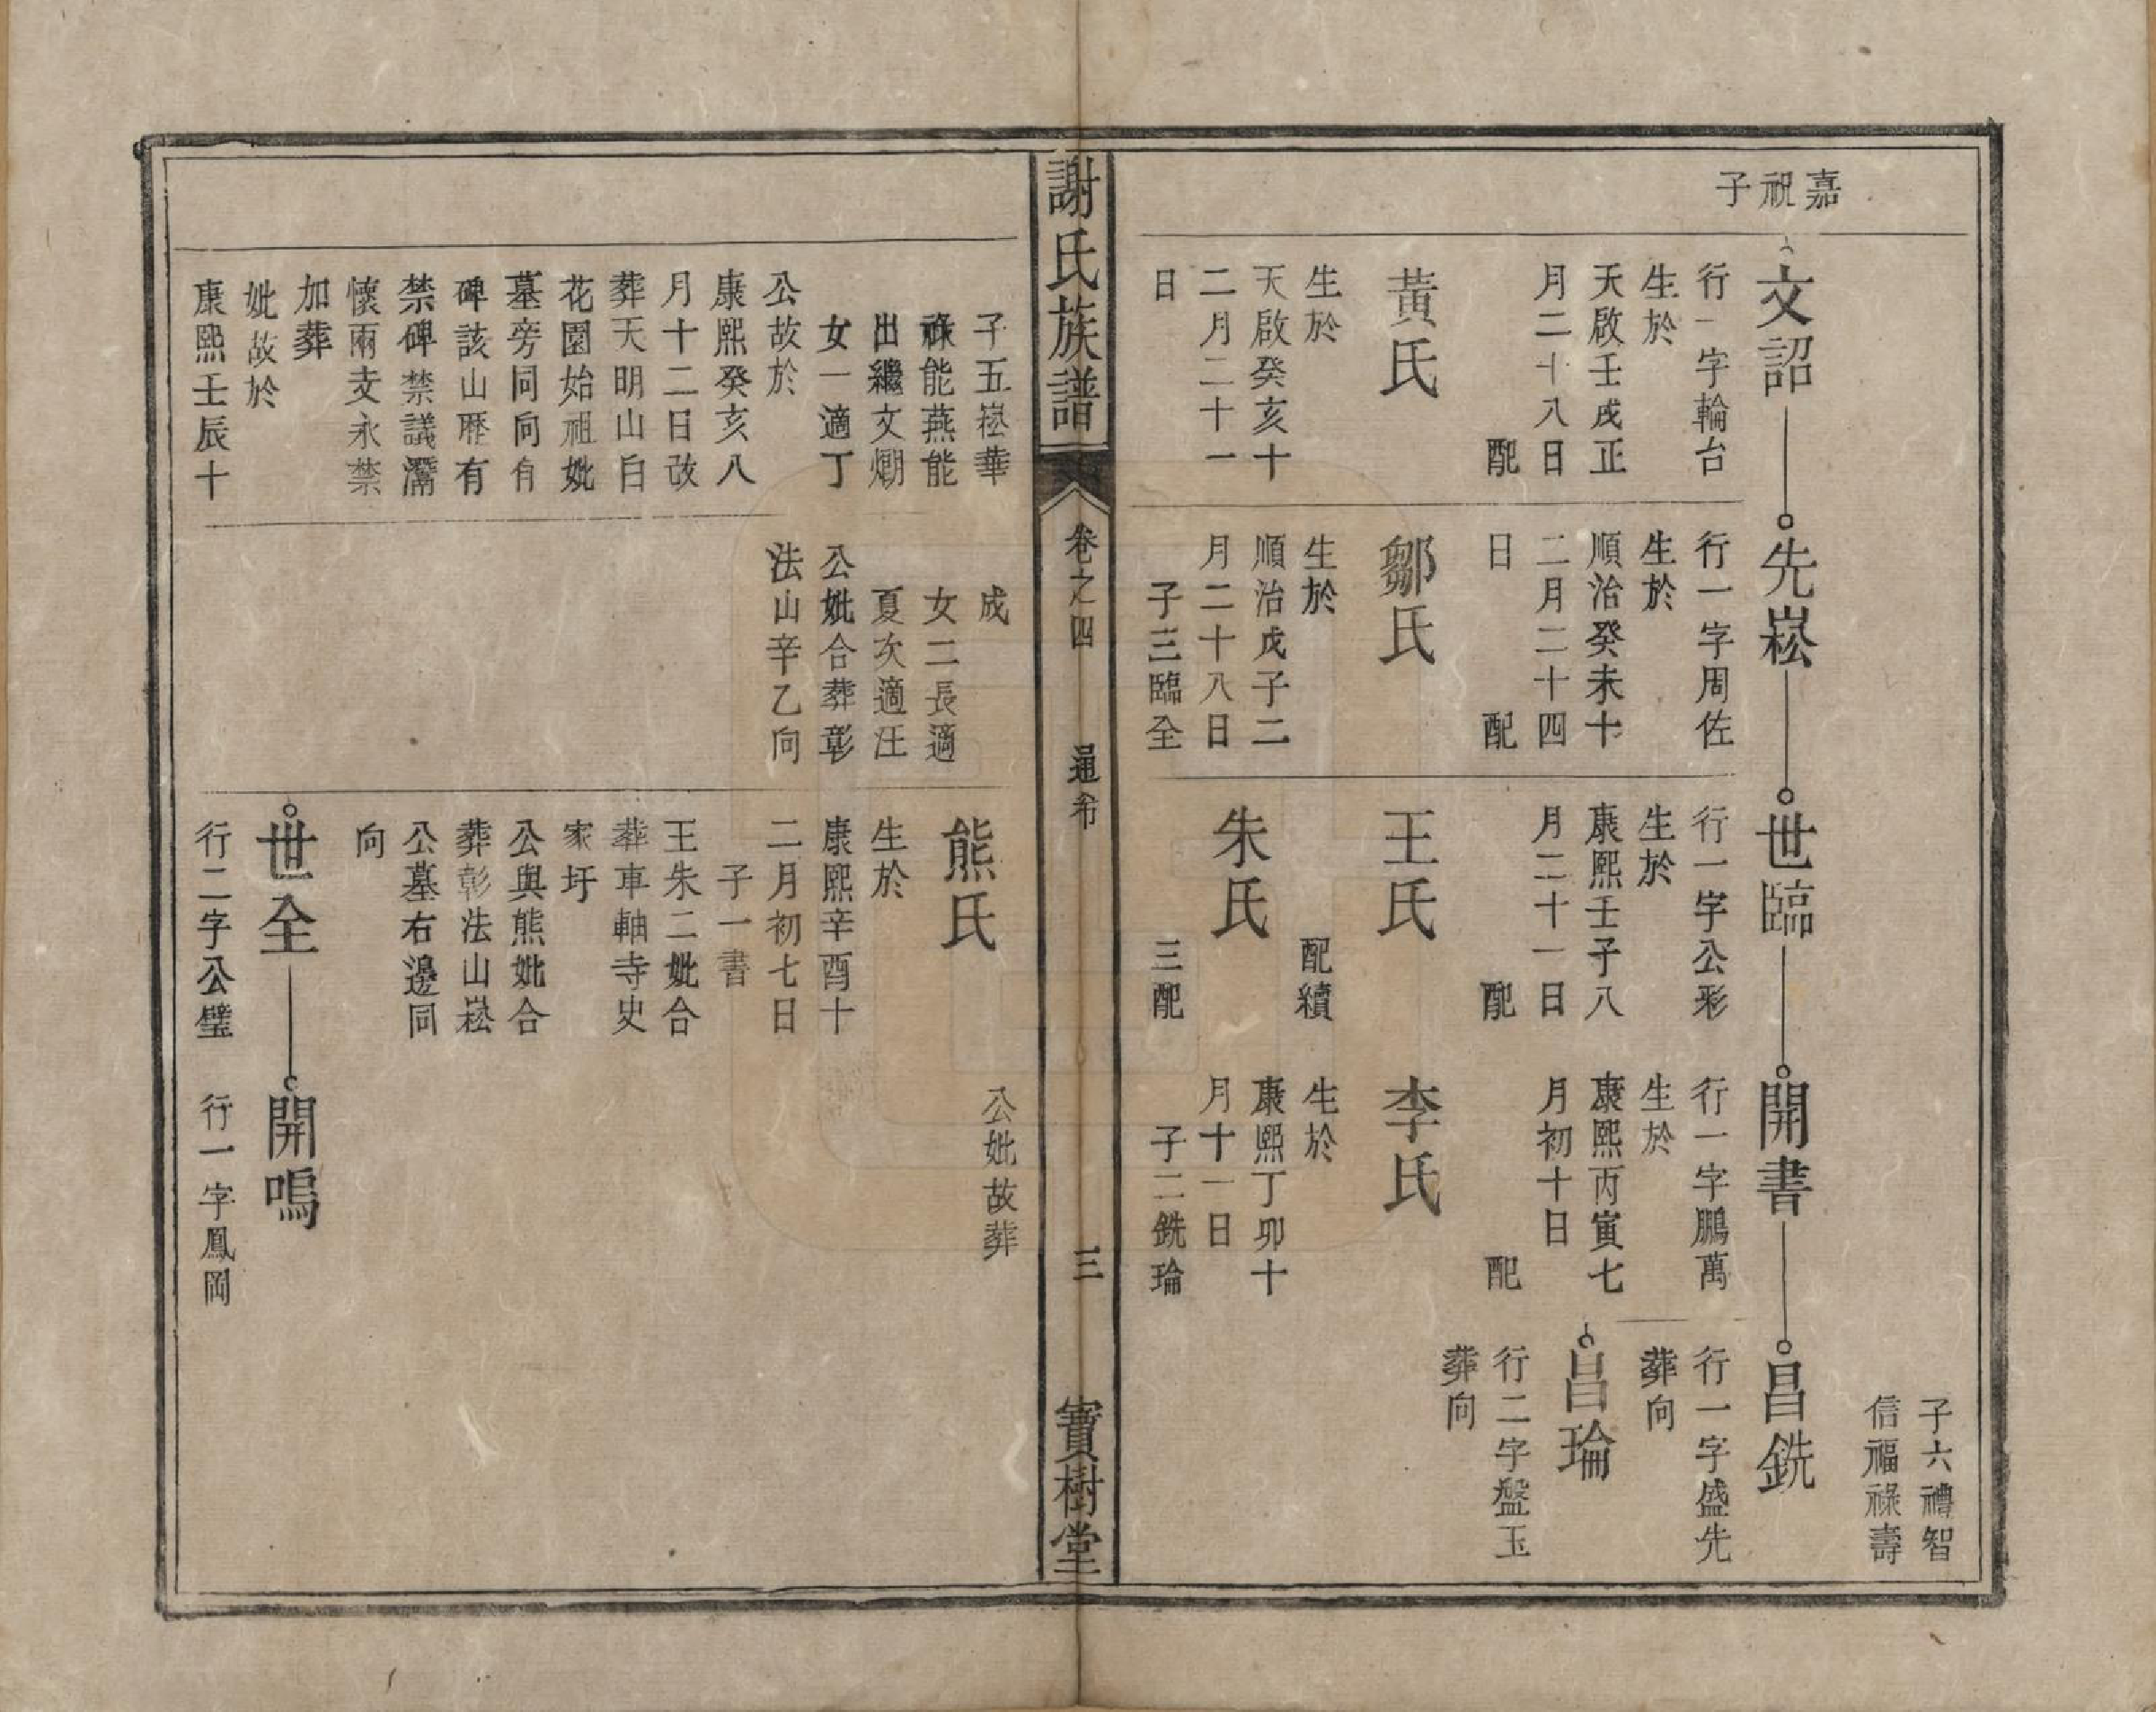 子六禮智
信福祿壽
嘉祝子
文詔
行一字輪台
生於
天啟壬戌正
月二十八日
配
黃氏
生於
天啟癸亥十
二月二十一
日
先崧
行一字周佐
生於
順治癸未十
二月二十四
日
配
鄒氏
生於
順治戊子二
月二十八日
子三臨全
世臨
行一字公彩
生於
康熙壬子八
月二十一日
配
王氏
配續
朱氏
三配
開書
行一字鵬萬
生於
康熙丙寅七
月初十日
配
李氏
生於
康熙丁卯十
月十一日
子二銑瑜
昌銑
行一字盛先
葬向
昌瑜
行二字盤玉
葬向
謝氏族譜
卷之四
通希
三
寶樹堂
子五崧華
祿能燕能
出繼文爛
女一適丁
公故於
康熙癸亥八
月十二日改
葬天明山白
花園始祖妣
墓旁同向有
碑該山歷有
禁碑禁議
懷兩支永禁
加葬
妣故於
康熙壬辰十
成
女二長適
夏次適汪
公妣合葬彰
法山辛乙向
熊氏
生於
康熙辛酉十
二月初七日
子一書
王朱二妣合
葬車軸寺史
家圩
公與熊妣合
葬彰法山崧
公墓右邊同
向
世全
行二字公璧
公妣故葬
開鳴
行一字鳳岡